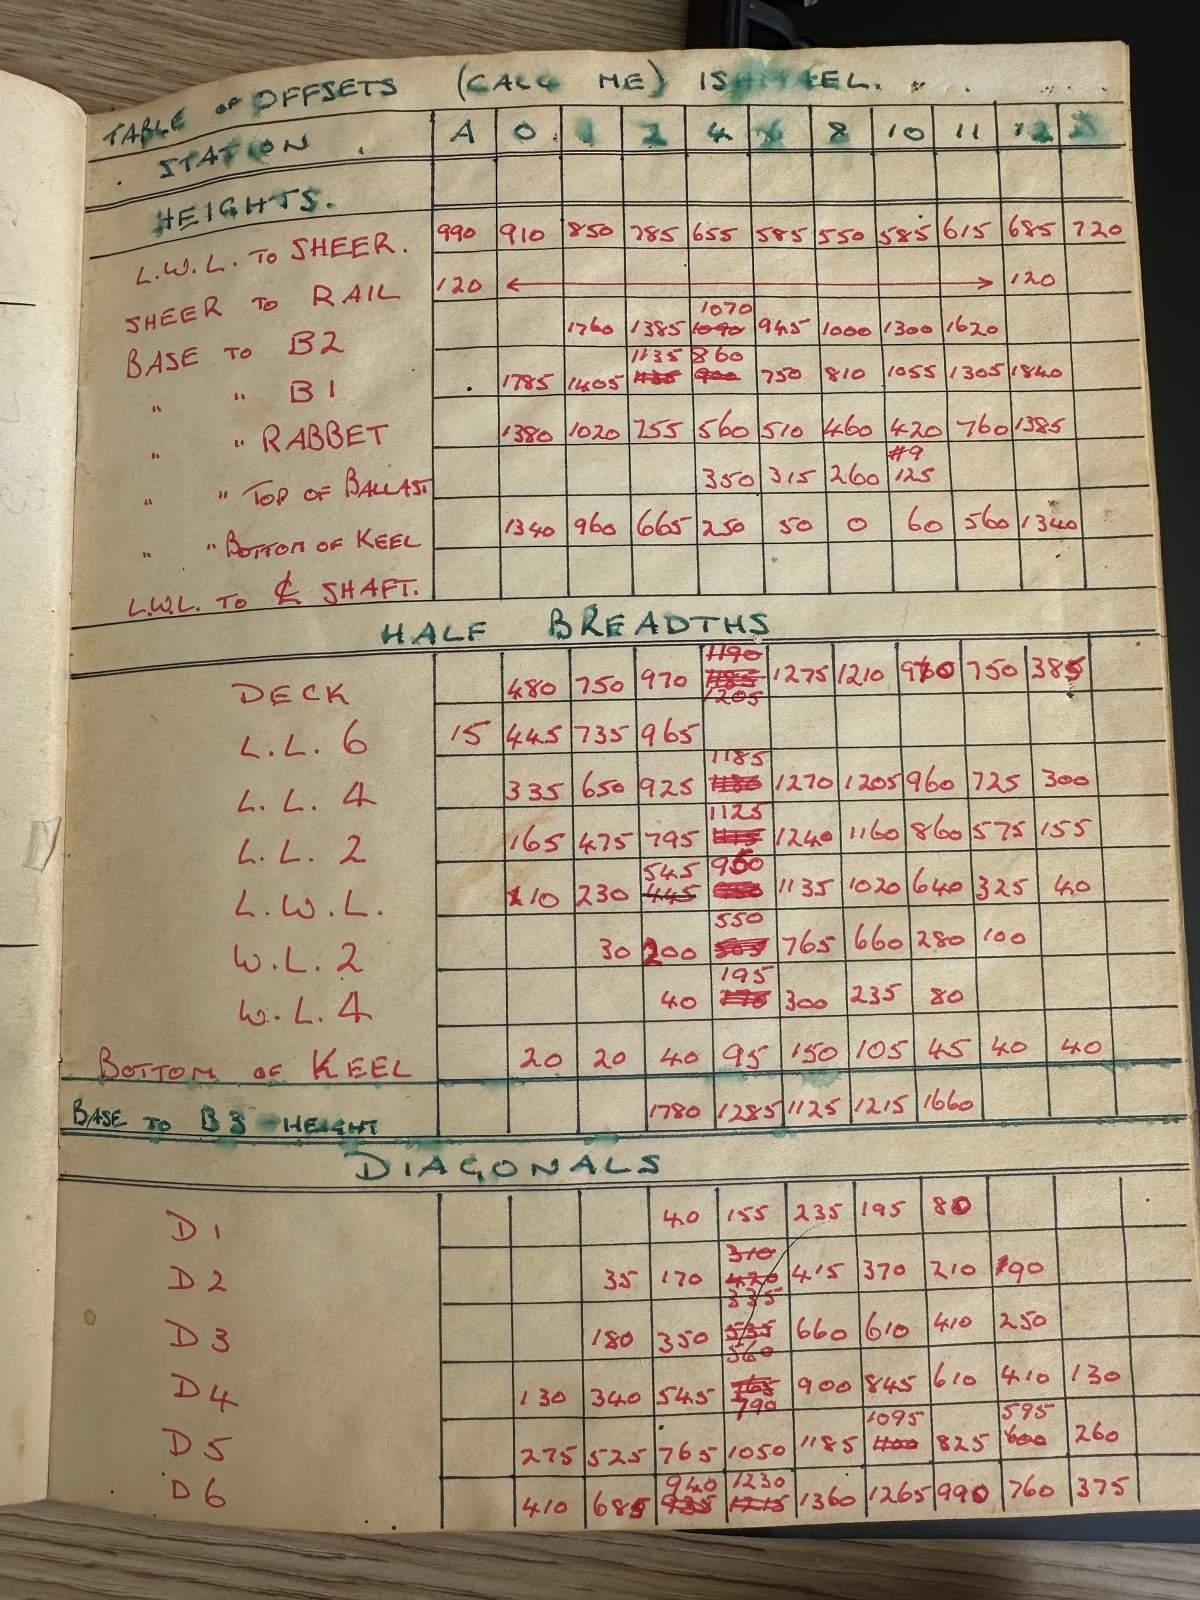 TABLE OF OFFSETS (CALL ME) ISHMAEL.
STATION A 0 1 2 4 6 8 10 11 12
HEIGHTS.
L.W.L. TO SHEER. 990 910 850 785 655 585 550 585 615 685 720
SHEER TO RAIL 120 120
1070
BASE TO B2 1760 1385 1090 945 1000 1300 1620
1135 860
" " B1 1785 1405 900 750 810 1055 1305 1840
" " RABBET 1380 1020 755 560 510 460 420 760 1385
" " TOP OF BALLAST 350 315 260 125
" " BOTTOM OF KEEL 1340 960 665 250 50 0 60 560 1340
L.W.L. TO ℄ SHAFT.
HALF BREADTHS
1190
DECK 480 750 970 1185 1275 1210 970 750 385
1205
L.L. 6 15 445 735 965
1185
L.L. 4 335 650 925 1270 1205 960 725 300
1125
L.L. 2 165 475 795 1115 1240 1160 860 575 155
545 950
L.W.L. 10 230 445 1135 1020 640 325 40
550
W.L. 2 30 200 505 765 660 280 100
195
W.L. 4 40 300 235 80
BOTTOM OF KEEL 20 20 40 95 150 105 45 40 40
BASE TO B3 HEIGHT 1780 1285 1125 1215 1660
DIAGONALS
D1 40 155 235 195 80
310
D2 35 170 420 415 370 210 90
335
D3 180 350 535 660 610 410 250
560
D4 130 340 545 765 900 845 610 410 130
790
1095 595
D5 275 525 765 1050 1185 1100 825 600 260
940 1230
D6 410 685 935 1215 1360 1265 990 760 375